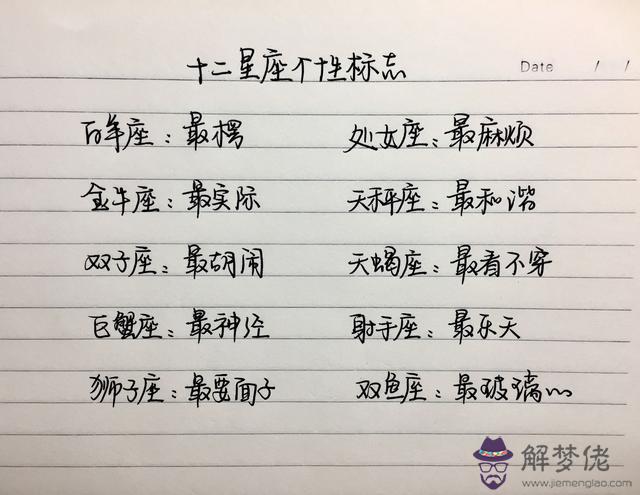 十二星座个性标志
Date / /
白羊座：最楞 处女座：最麻烦
金牛座：最实际 天秤座：最和谐
双子座：最胡闹 天蝎座：最看不穿
巨蟹座：最神经 射手座：最乐天
狮子座：最要面子 双鱼座：最玻璃心
解梦佬
www.jiemenglao.com